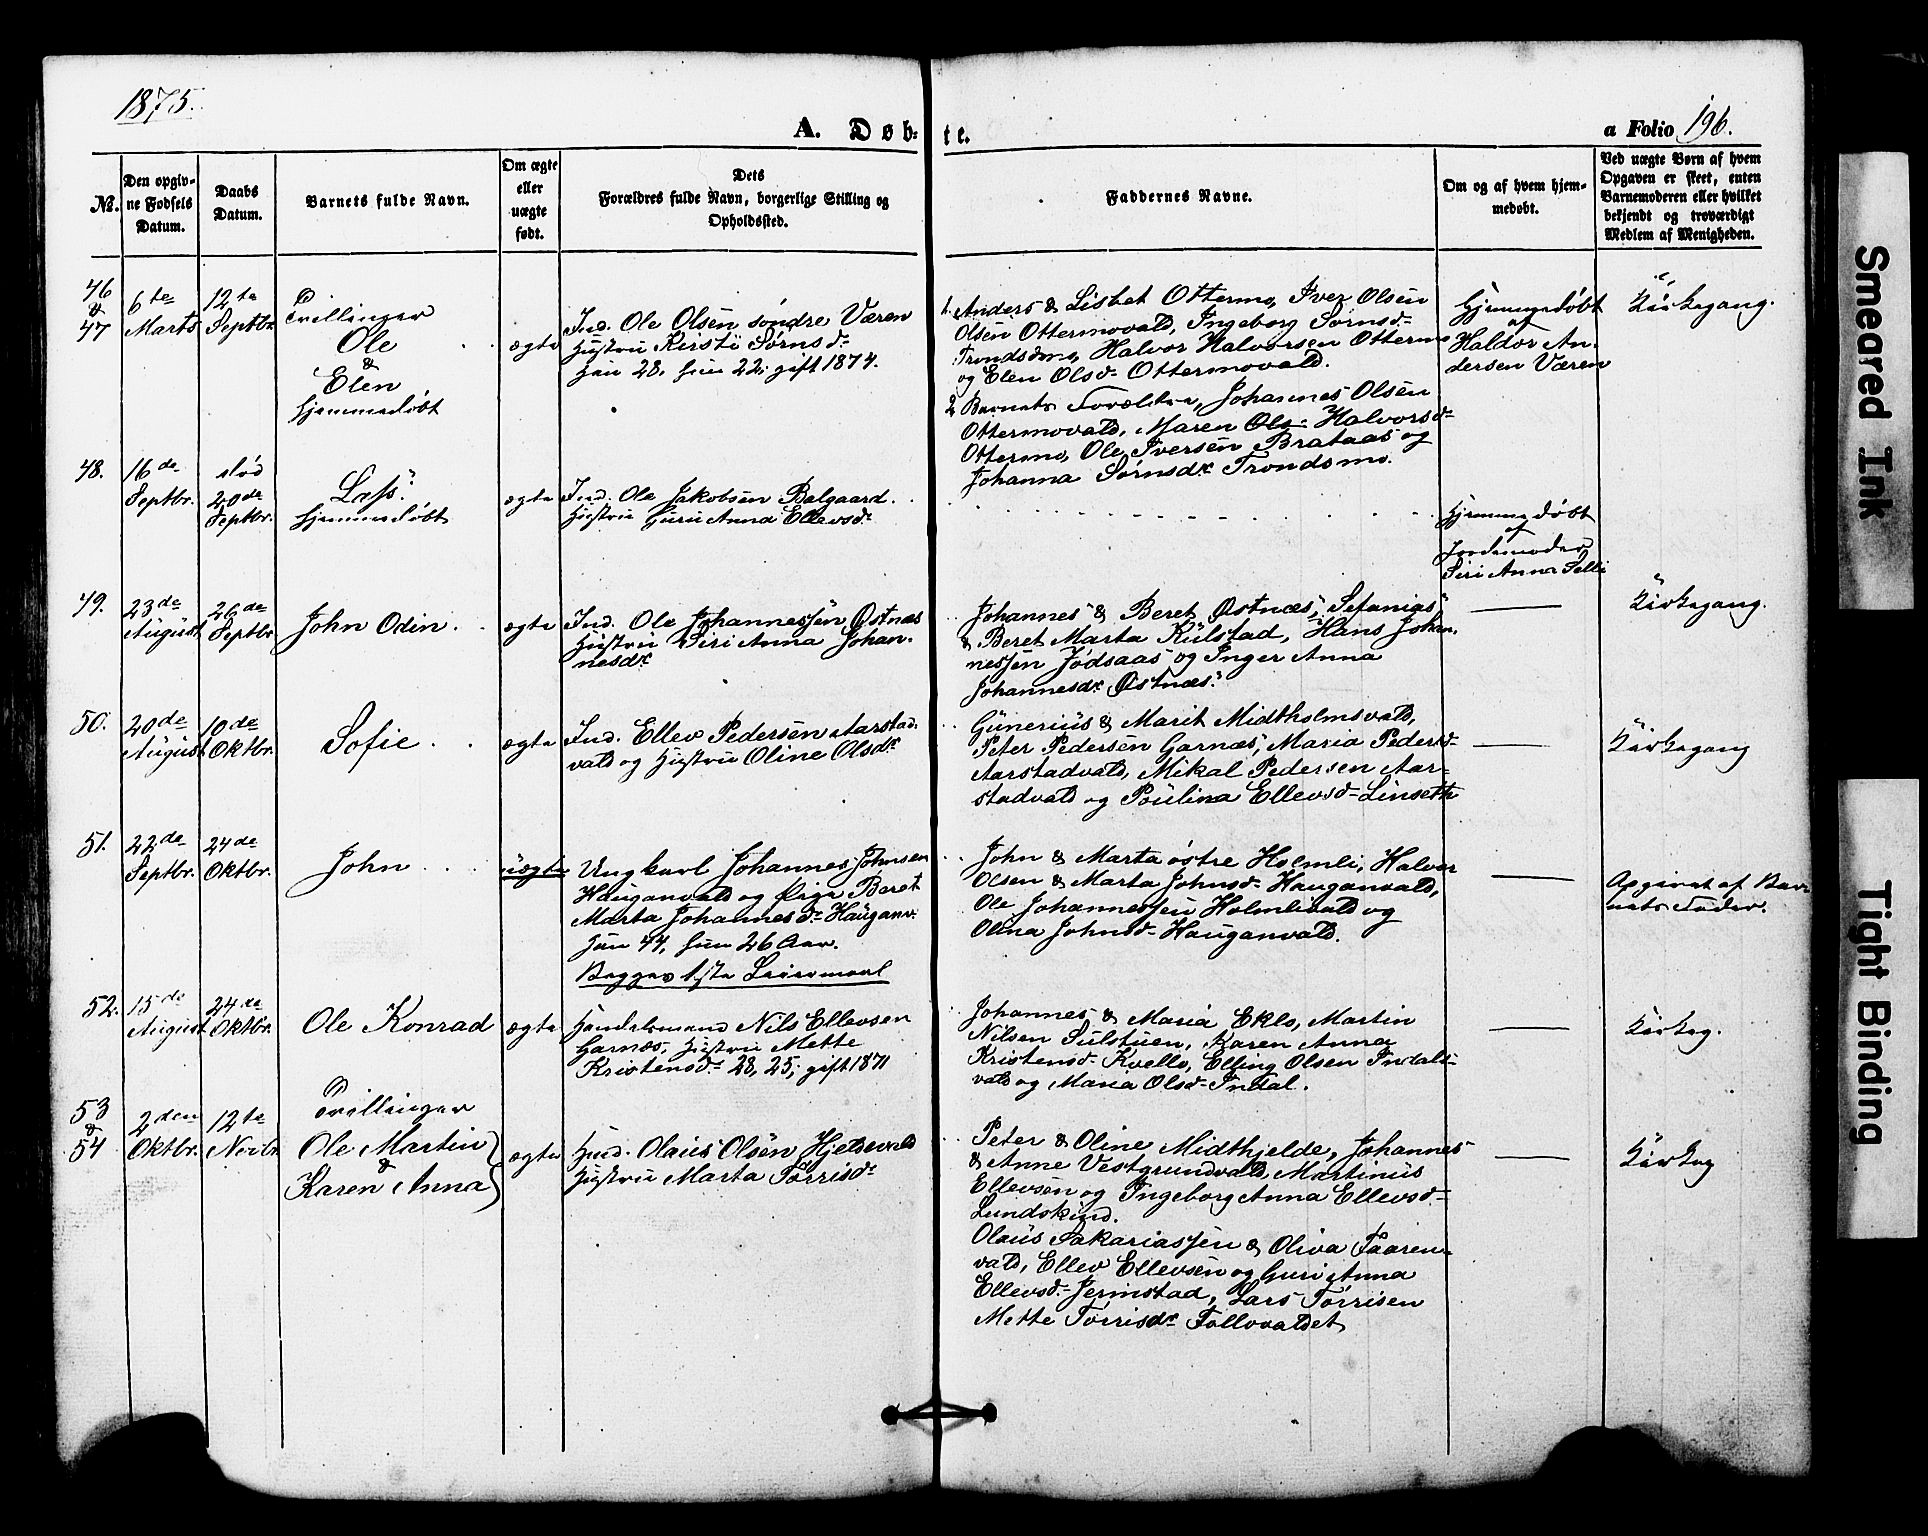 1875.
A. Døb-
te.
a Folio 196.
No.
Den opgiv-
ne Fødsels
Datum.
Daabs
Datum.
Barnets fulde Navn.
Om ægte
eller
uægte
født.
Dets
Forældres fulde Navn, borgerlige Stilling og
Opholdssted.
Faddernes Navne.
Om og af hvem hjem-
medøbt.
Ved uægte Børn af hvem
Opgaven er skeet, enten
Barnemoderen eller hvilket
bekjendt og troværdigt
Medlem af Menigheden.
46
&
47
6te
Marts
12te
Septbr.
Tvillinger
Ole
&
Elen
hjemmedøbt
ægte
Ind. Ole Olsen søndre Væren
Hustru Kersti Sørnsd.
Han 28, hun 22, gift 1874.
1. Anders & Lisbet Ottermo, Iver Olsen
Olsen Ottermovald, Ingeborg Sørnsd.
Trondsdmo, Halvor Halvorsen Ottermo
og Elen Olsd. Ottermovald.
2 Barnets Forældre, Johannes Olsen
Ottermovald, Maren Ols. Halvorsd.
Ottermo, Ole Iversen Brataas og
Johanna Sørnsdr. Trondsmo.
Hjemmedøbt
af
Haldor An-
dersen Væren
Kirkegang.
48.
16de
Septbr.
død
20de
Septbr.
Lass.
hjemmedøbt
ægte
Ind. Ole Jakobsen Balgaard.
Hustru Guru Anna Ellevsd.
Hjemmedøbt
af
Jordemoder
Siri Anna Selli
49.
23de
August
26de
Septbr
John Odin.
ægte
Ind. Ole Johannessen Østnæs
Hustru Siri Anna Johan-
nesdr.
Johannes & Beret Østnæs, Sefanias
& Beret Marta Kulstad, Hans Johan-
nessen Jødsaas og Inger Anna
Johannesdr. Østnæs.
Kirkegang.
50.
20de
August
10de
Oktbr.
Sofie.
ægte
Ind. Ellev Pedersen Aarstad-
vald og Hustru Oline Olsdr.
Gunerius & Marit Midtholmsvald,
Peter Pedersen Garnæs, Maria Pedersd.
Aarstadvald, Mikal Pedersen Aar-
stadvald og Poulina Ellevsd. Linseth
Kirkegang
51.
22de
Septbr.
24de
Oktbr.
John
uægte
Ungkarl Johannes Johnsen
Hauganvald og Pige Beret
Marta Johannesd. Hauganv.
Han 44, hun 26 Aar.
Begges 1ste Leiermaal
John & Marta østre Holmli, Halvor
Olsen & Marta Johnsd. Hauganvald,
Ole Johannessen Holmlivald og
Olina Johnsd. Hauganvald.
Opgivet af Bar-
nets Fader.
52.
15de
August
24de
Oktbr.
Ole Konrad
ægte
Handelsmand Nils Ellevsen
Garnæs, Hustru Mette
Kristensd. 28, 25, gift 1871
Johannes & Maria Eklo, Martin
Nilsen Sulstuen, Karen Anna
Kristensd. Kvello, Elling Olsen Indals-
vald og Maria Olsd. Indal.
Kirkeg.
53
&
54
2den
Oktbr.
12te
Novbr
Tvillinger
Ole Martin
&
Karen Anna
ægte
Husd. Olaus Olsen Hjeldevald
Hustru Marta Tørrisd.
Peter & Oline Midthjelde, Johannes
& Anne Vestgrundvald, Martinus
Ellevsen og Ingeborg Anna Ellevsd.
Lundskind.
Olaus Sakariassen & Oliva Faaren-
vald, Ellev Ellevsen og Guri Anna
Ellevsd. Jermstad, Lars Tørrisen
Mette Tørrisdr. Follovaldet
Kirkeg
Smeared Ink
Tight Binding